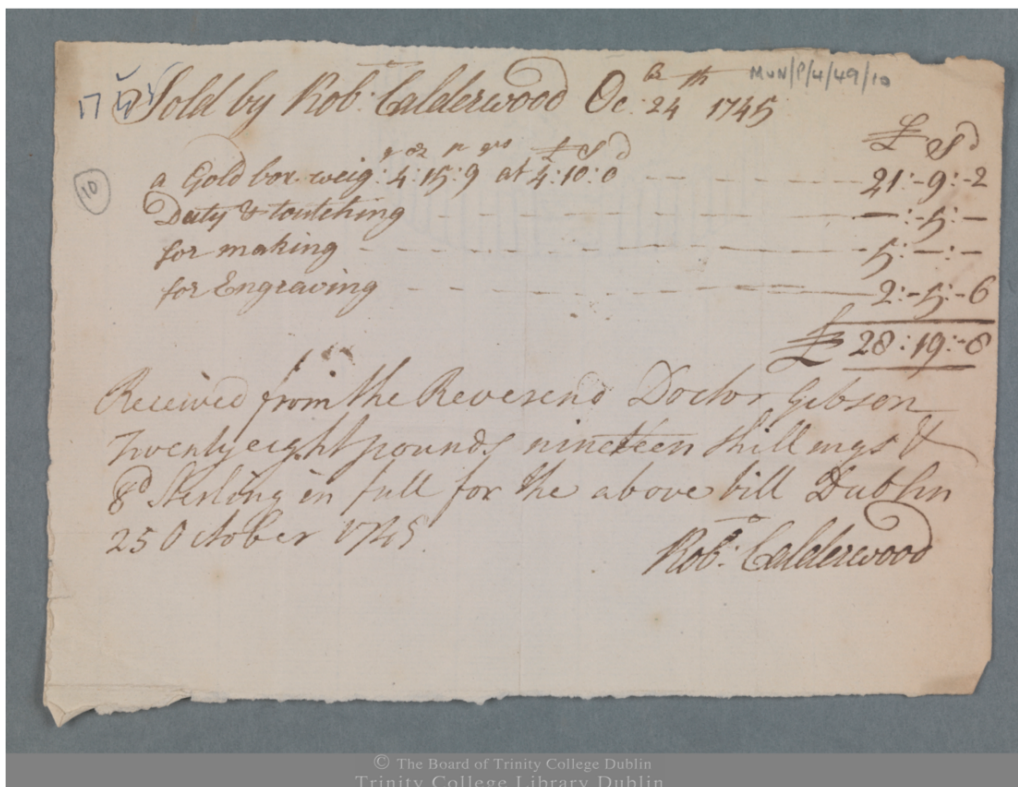 MUN/P/4/49/10
1745
Sold by Robt: Calderwood Ocbr: 24th 1745
£ S d
oz p grs £ S d
10
a Gold box weig: 4:15:9 at 4:10:0 21:-9:-2
Duty & toutching —:-5:—
for making 5:—:—
for Engraving 2:-5:-6
£ 28:19:-8
Received from the Reverend Doctor Gibson
Twenty eight pounds nineteen shillings &
8d Sterling in full for the above bill Dublin
25 October 1745.
Robt: Calderwood
© The Board of Trinity College Dublin
Trinity College Library Dublin